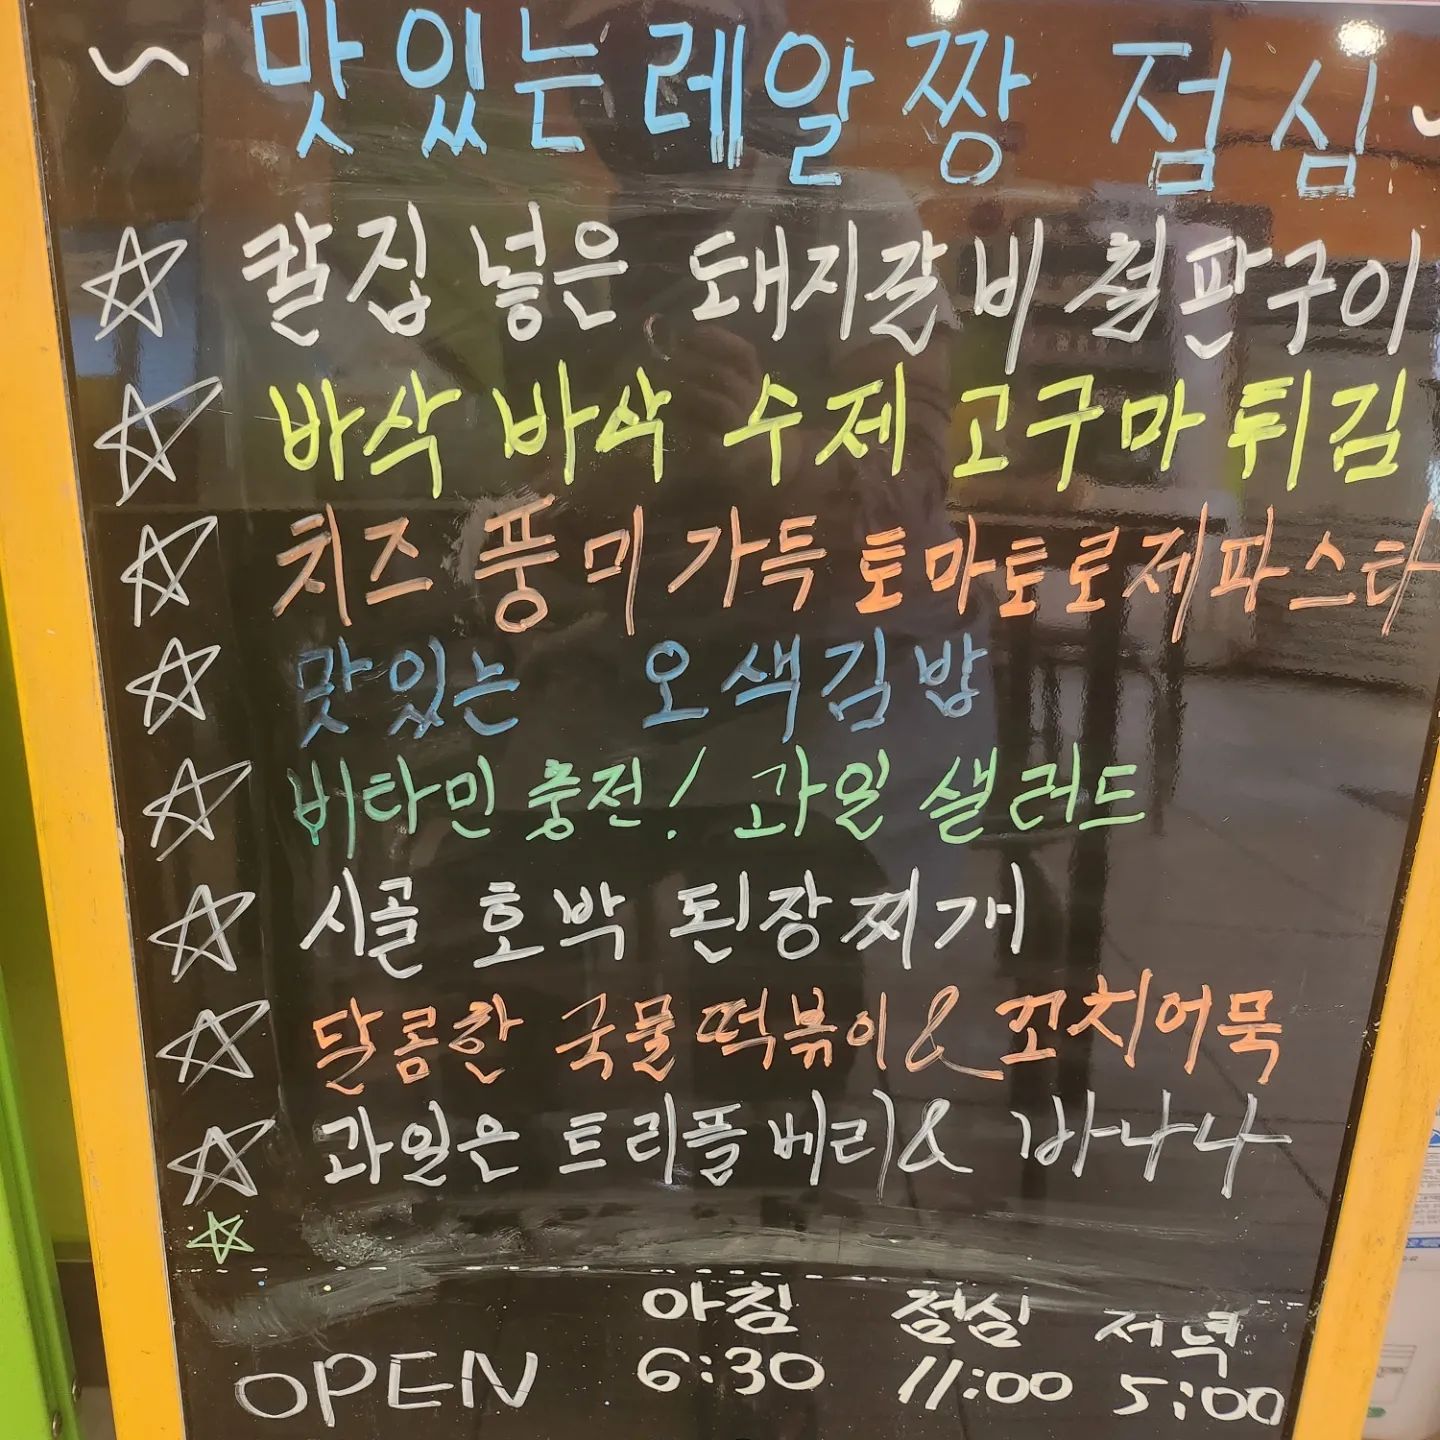 ~ 맛있는 레알짱 점심 ~
☆ 칼집 넣은 돼지갈비 철판구이
☆ 바삭 바삭 수제 고구마 튀김
☆ 치즈 풍미 가득 토마토로제파스타
☆ 맛있는 오색김밥
☆ 비타민 충전! 과일 샐러드
☆ 시골 호박 된장찌개
☆ 달콤한 국물떡볶이 & 꼬치어묵
☆ 과일은 트리플베리 & 바나나
☆
아침 점심 저녁
OPEN 6:30 11:00 5:00